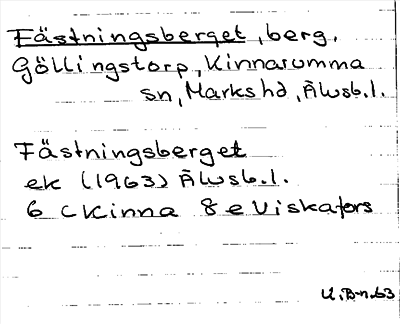 Fästningsberget, berg,
Göllingstorp, Kinnarumma
sn, Marks hd, Älvsb.l.
Fästningsberget
ek (1963) Älvsb.l.
6 C Kinna 8 e Viskafors
U.B-n.63